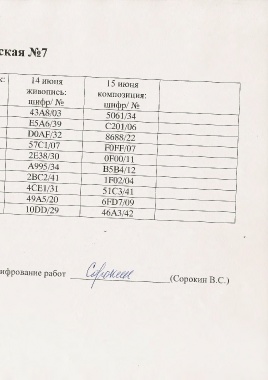 ская №7
14 июня 15 июня
живопись: композиция:
шифр/ № шифр/ №
43A8/03 5061/34
E5A6/39 C201/06
D0AF/32 8688/22
57C1/07 F0FF/07
2E38/30 0F00/11
A995/34 B5B4/12
2BC2/41 1F02/04
4CE1/31 51C3/41
49A5/20 6FD7/09
10DD/29 46A3/42
ифрование работ Сорокин (Сорокин В.С.)